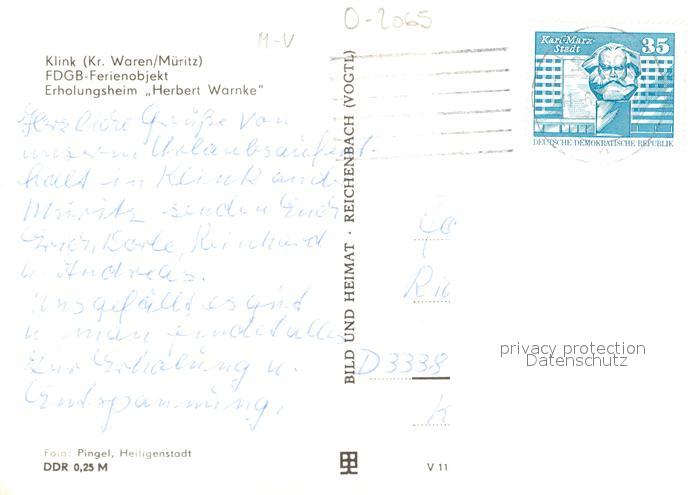 O-2065
M-V
Klink (Kr. Waren/Müritz)
FDGB-Ferienobjekt
Erholungsheim „Herbert Warnke"
Herzliche Grüße von
unserem Urlaubsaufent-
halt in Klink an der
Müritz senden Euch
Erich, Reinhard
u. Andreas.
Uns gefällt es gut
u. man findet alles
zur Erholung u.
Entspannung.
Foto: Pingel, Heiligenstadt
DDR 0,25 M
BILD UND HEIMAT · REICHENBACH (VOGTL)
V 11
Karl-Marx-
Stadt
35
DEUTSCHE DEMOKRATISCHE REPUBLIK
D 3338
privacy protection
Datenschutz